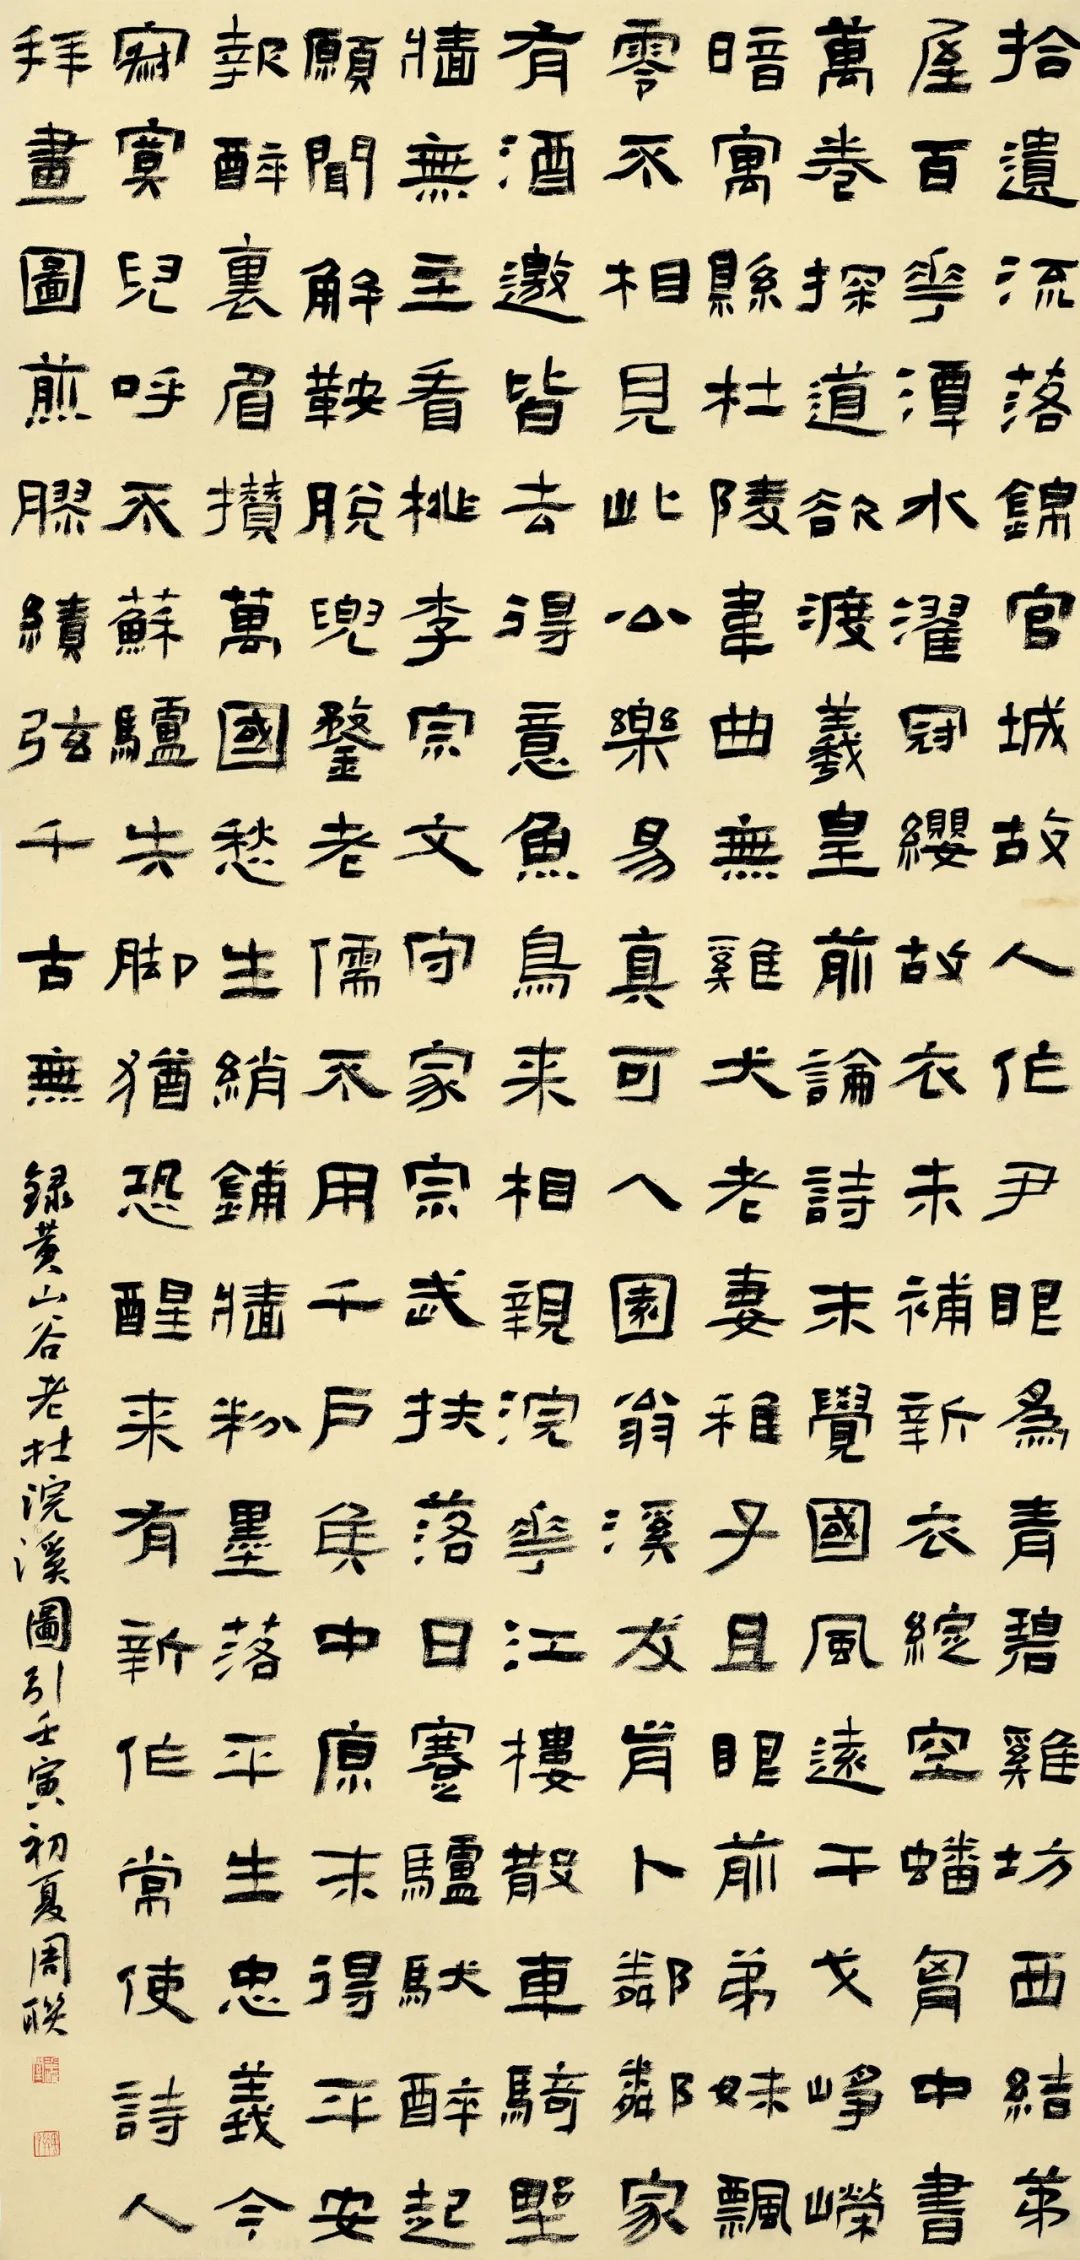 拾遺流落錦官城故人作尹眼為青碧雞坊西結茅
屋百花潭水濯冠纓故衣未補新衣綻空蟠胷中書
萬卷探道欲渡羲皇前論詩未覺國風遠干戈崢嶸
暗寓縣杜陵韋曲無雞犬老妻稚子且眼前弟妹飄
零不相見此公樂易真可人園翁溪友肯卜鄰鄰家
有酒邀皆去得意魚鳥来相親浣花江樓散車騎野
牆無主看桃李宗文守家宗武扶落日蹇驢馱醉起
願聞解鞍脫兜鍪老儒不用千戶侯中原未得平安
報醉裏眉攢萬國愁生綃鋪牆粉墨落平生忠義今
寂寞兒呼不蘇驢失脚猶恐醒来有新作常使詩人
拜畫圖煎膠續弦千古無
録黄山谷老杜浣溪圖引壬寅初夏周联